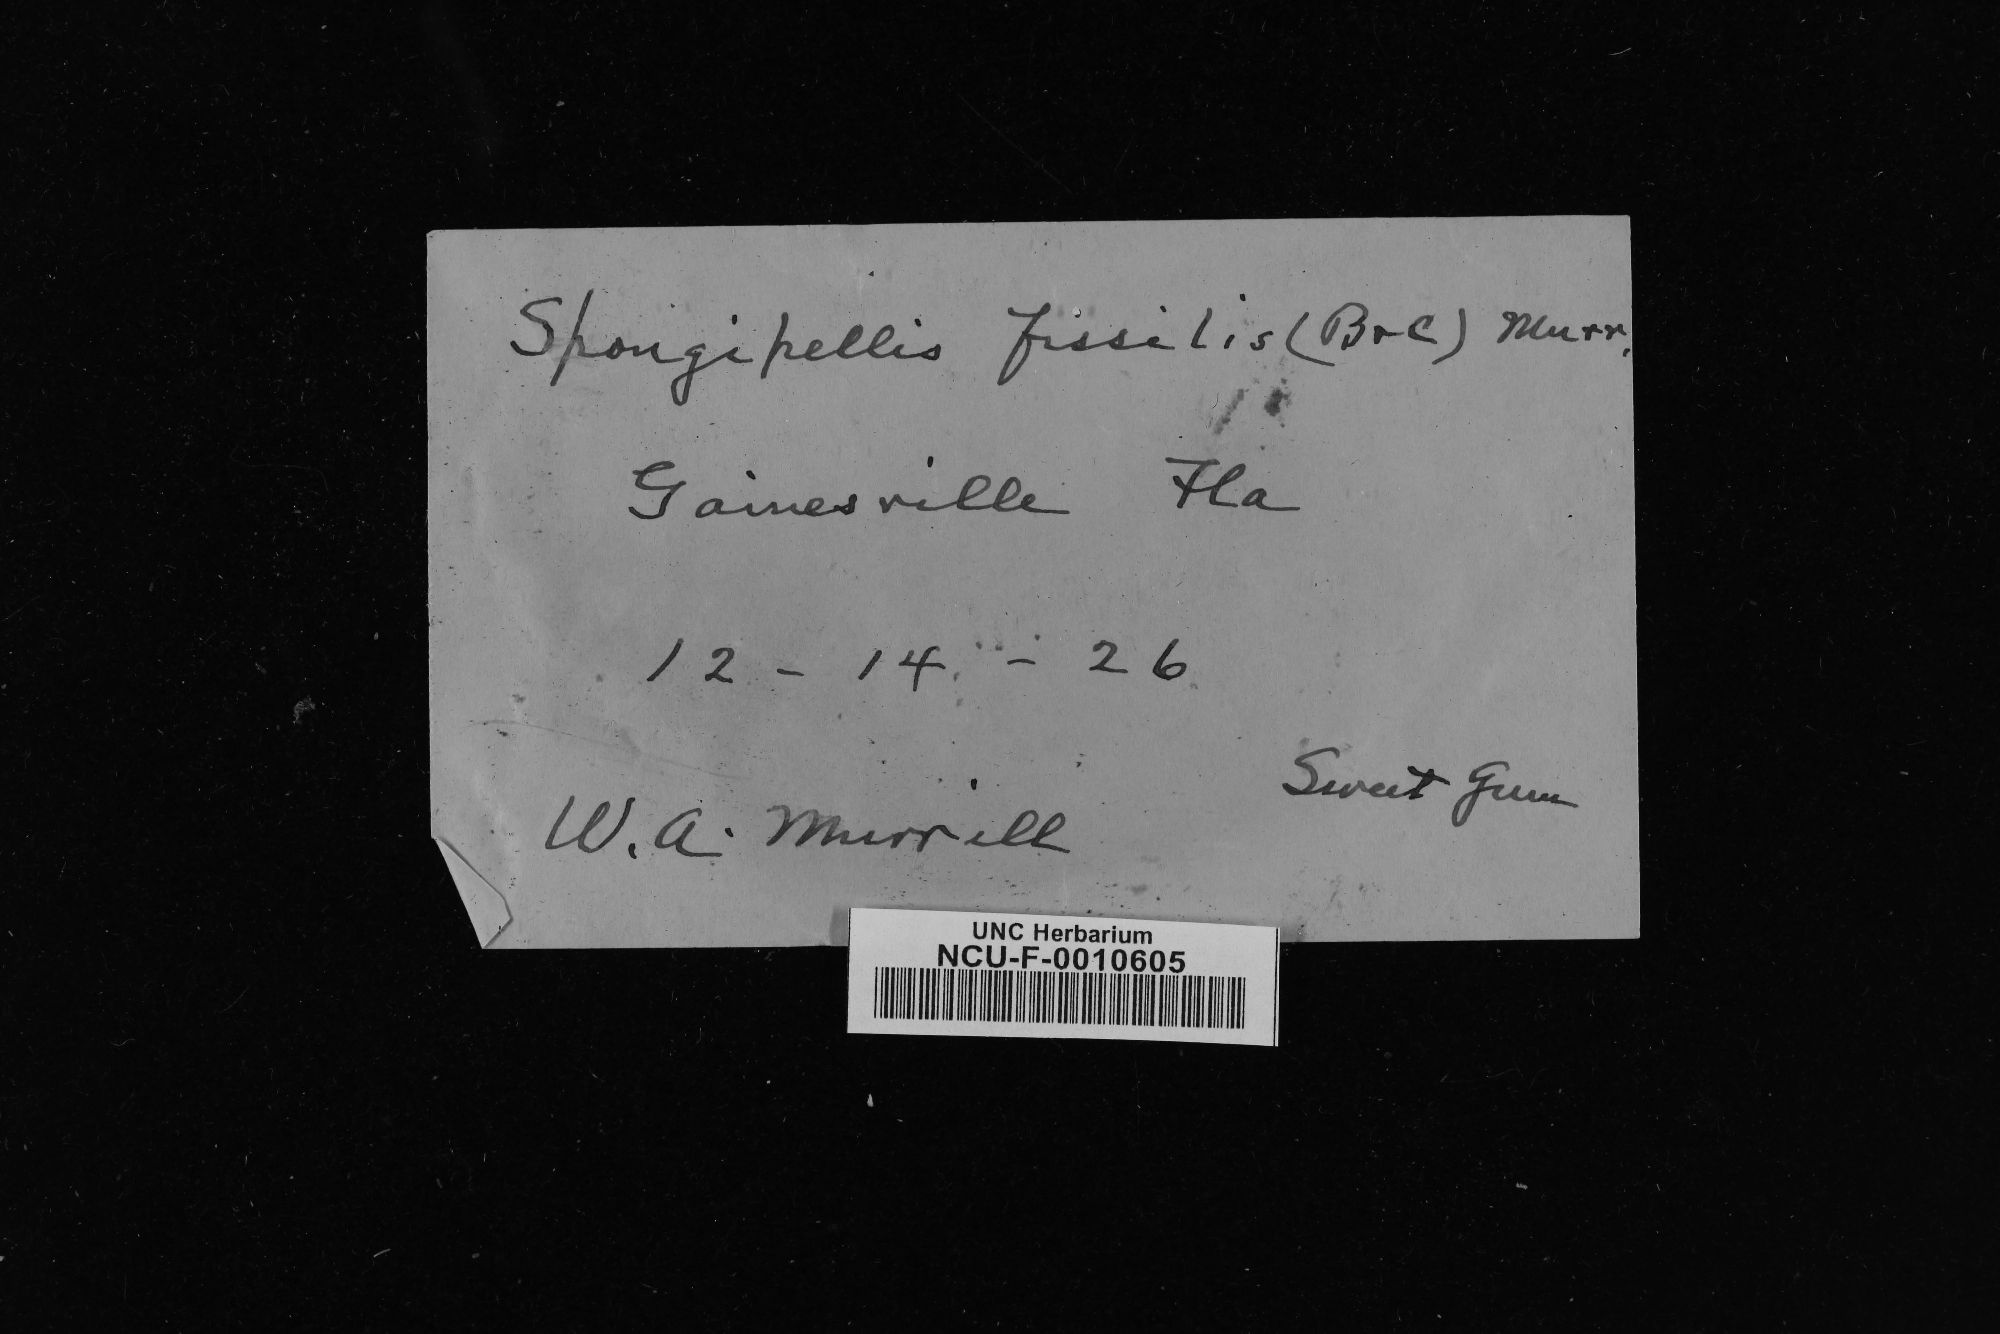 Spongipellis fissilis (B+C) Murr.
Gainesville Fla
12 - 14 - 26
Sweet Gum
W. A. Murrill
UNC Herbarium
NCU-F-0010605